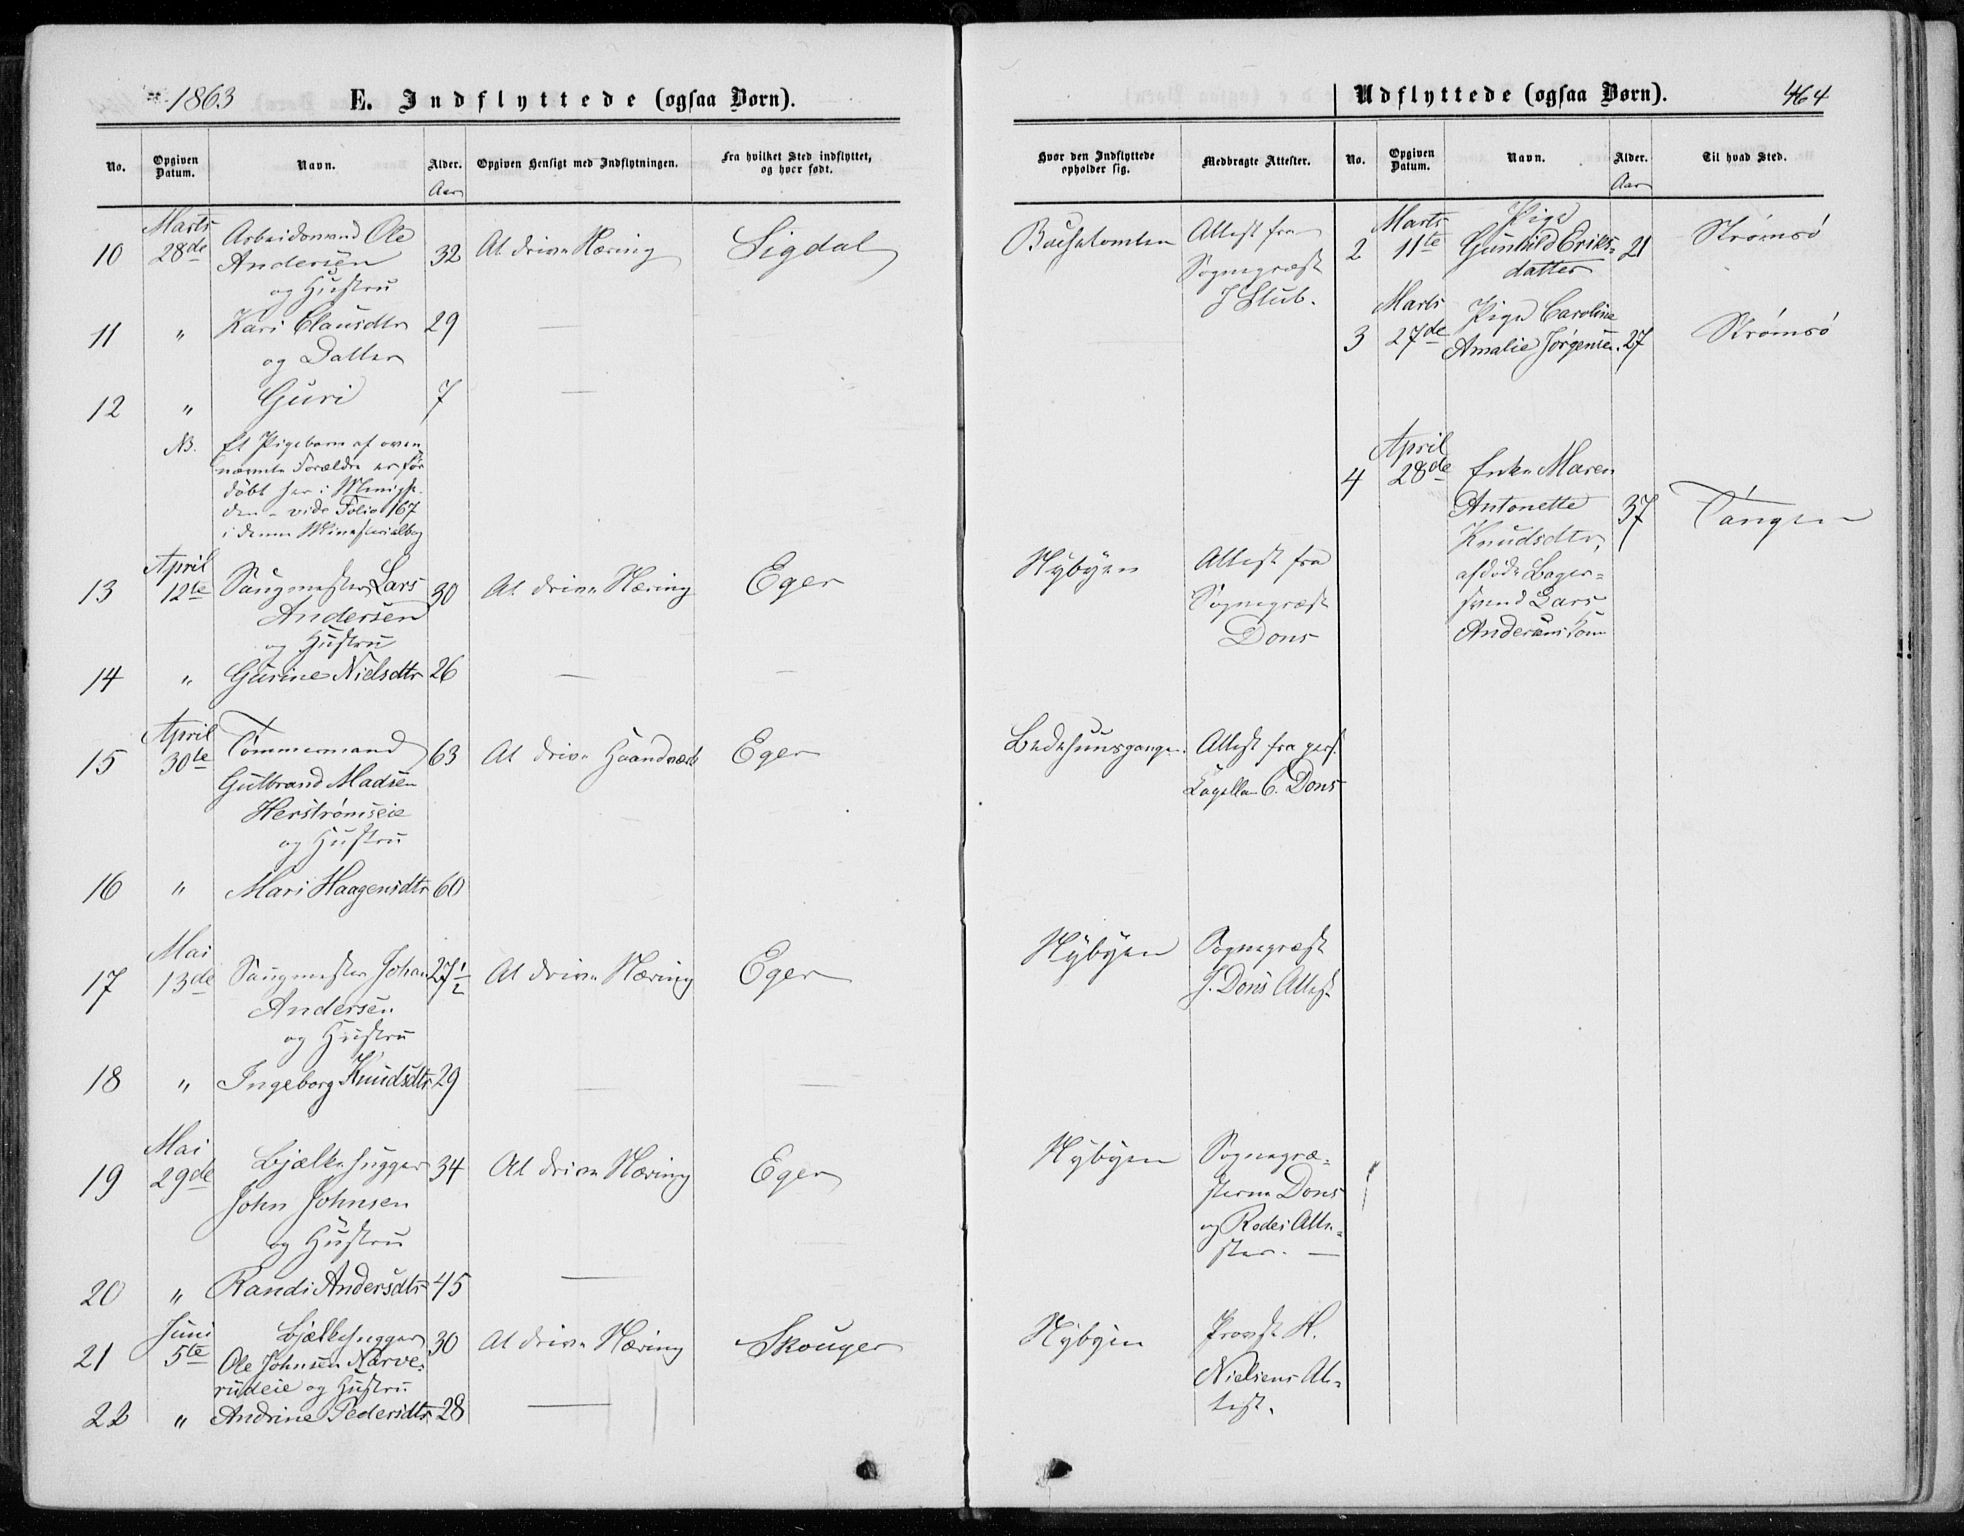 1863
E. Indflyttede (ogsaa Børn).
No.
Opgiven
Datum.
Navn.
Alder.
Aar
Opgiven Hensigt med Indflytningen.
Fra hvilket Sted indflyttet,
og hvor født.
10
Marts
28de
Arbeidsmand Ole
Andersen
og Hustru
32
At drive Næring
Sigdal
11
"
Kari Clausdtr
og Datter
29
—
12
"
Guri
7
—
NB.
Et Pigebarn af oven
nævnte Forældre er før
døbt her i Menighe
den - vide Folio 167
i denne Ministerialbog
13
April
12te
Saugmester Lars
Andersen
og Hustru
30
At drive Næring
Eger
14
"
Gurine Nielsdtr
26
—
—
15
April
30te
Tømmermand
Gulbrand Madsen
Herstrømseie
og Hustru
63
At drive Haandværk
Eger
16
"
Mari Haagensdtr
60
17
Mai
13de
Saugmester Johan
Andersen
og Hustru
27½
At drive Næring
Eger
18
"
Ingeborg Knudsdtr
29
—
—
19
Mai
29de
Bjælkehugger
John Johnsen
og Hustru
34
At drive Næring
Eger
20
"
Randi Andersdtr
45
—
21
Juni
5te
Bjælkehugger
Ole Johnsen Narve-
rudeie og Hustru
30
At drive Næring
Skouger
22
"
Andrine Pedersdtr
28
—
464
Hvor den Indflyttede
opholder sig.
Medbragte Attester.
Bachetomten
Attest fra
Sognepræst
J Stub.
Nybyen
Attest fra
Sognepræst
Dons
Bedehuusgangen.
Attest fra pers.
Capellan C. Dons
Nybyen
Sognepræst
J. Dons Attest
Nybyen
Sognepræ-
sterne Dons
og Rodes Atte-
ster. —
Nybyen
Provst H.
Nielsens At-
test.
Udflyttede (ogsaa Børn).
No.
Opgiven
Datum.
Navn.
Alder.
Aar
Til hvad Sted.
2
Marts
11te
Pige
Gunhild Eriks-
datter
21
Strømsø
3
Marts
27de
Pige Caroline
Amalie Jørgensen.
27
Strømsø
4
April
28de
Enke Maren
Antonette
Knudsdtr,
afdøde Bager-
svend Lars
Andersens Kone
37
Tangen